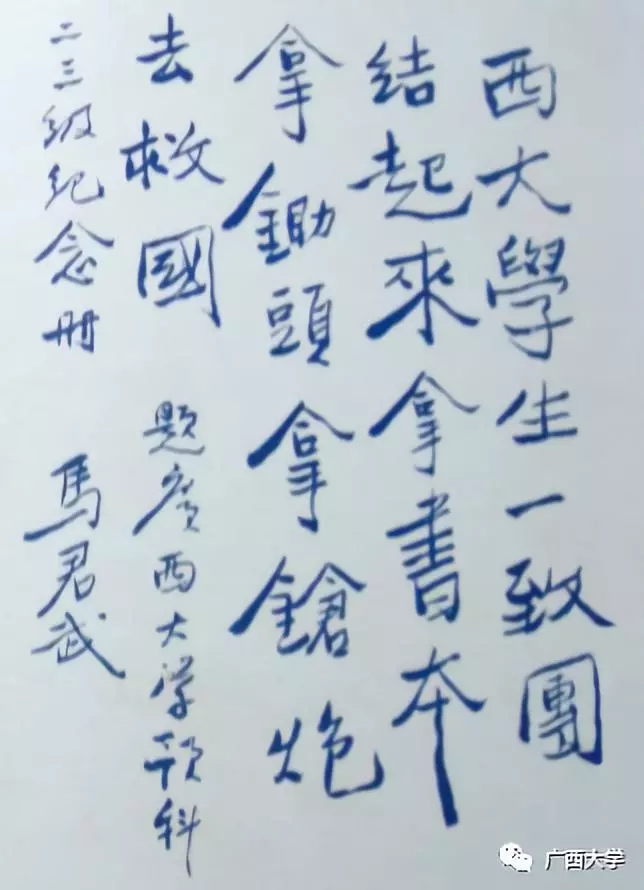 西大學生一致團
结起來拿書本
拿鋤頭拿鎗炮
去救國
題廣西大学預科
二三级纪念册
馬君武
广西大学